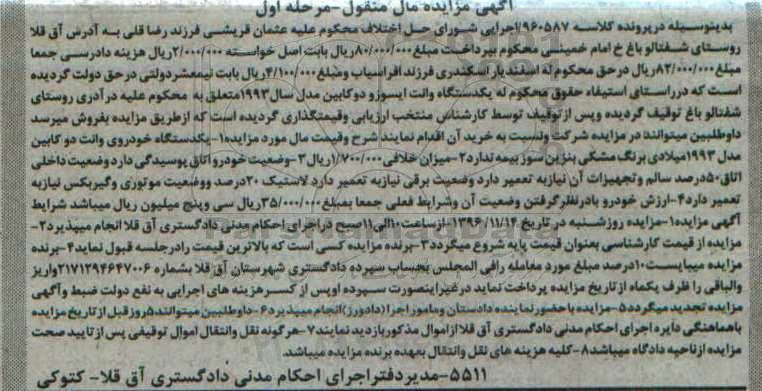 آگهی مزایده مال منقول-مرحله اول
بدینوسیله درپرونده کلاسه ۹۶۰۵۸۷/اجرایی شورای حل اختلاف محکوم علیه عثمان قریشی فرزند رضا قلی به آدرش آق قلا
روستای شفتالو باغ خ امام خمینی محکوم بپرداخت مبلغ۸۰/۰۰۰/۰۰۰ریال بابت اصل خواسته ۲/۰۰۰/۰۰۰ریال هزینه دادرسی جمعا
مبلغ۸۲/۰۰۰/۰۰۰ریال در حق محکوم له اسفندیار اسکندری فرزند افراسیاب و مبلغ۴/۱۰۰/۰۰۰ریال بابت نیمعشر دولتی در حق دولت گردیده
است که درراستای استیفاء حقوق محکوم له یکدستگاه وانت ایسوزو دوکابین مدل سال۱۹۹۳متعلق به محکوم علیه درآدری روستای
شفتالو باغ توقیف گردیده وپس ازتوقیف توسط کارشناش منتخب ارزیابی وقیمتگذاری گردیده است که ازطریق مزایده بفروش میرسد
داوطلبین میتوانند در مزایده شرکت ونسبت به خرید آن اقدام نمایند شرح وقیمت مال مورد مزایده۱-یکدستگاه خودروی وانت دو کابین
مدل ۱۹۹۳میلادی برنگ مشکی بنزین سوز بیمه ندارد۲-میزان خلافی۱/۷۰۰/۰۰۰ریال۳-وضعیت خودرو اتاق پوسیدگی دارد وضعیت داخلی
اتاق۵۰درصد سالم وتجهیزات آن نیازبه تعمیر دارد وضعیت برقی نیازبه تعمیر دارد لاستیک ۲۰درصد ووضعیت موتوری وگیربکس نیازبه
تعمیر دارد۴-ارزش خودرو بادرنظرگرفتن وضعیت آن وشرایط فعلی جمعا بمبلغ۳۵/۰۰۰/۰۰۰ریال سی وپنج میلیون ریال میباشد شرایط
آگهی مزایده۱-مزایده روزشنبه در تاریخ ۱۳۹۶/۱۱/۱۴-ازساعت۱۰الی۱۱صبح دراجرای احکام مدنی دادگستری آق قلا انجام میپذیرد۲-
مزایده از قیمت کارشناسی بعنوان قیمت پایه شروع میگردد۳-برنده مزایده کسی است که بالاترین قیمت رادرجلسه قبول نماید۴-برنده
مزایده میبایست۱۰درصد مبلغ مورد معامله رافی المجلس بحساب سپرده دادگستری شهرستان آق قلا بشماره ۲۱۷۱۲۹۴۶۴۷۰۰۶واریز
والباقی را ظرف یکماه ازتاریخ مزایده پرداخت نماید درغیراینصورت سپرده اوپس از کسر هزینه های اجرایی به نفع دولت ضبط وآگهی
مزایده تجدید میگردد۵-مزایده باحضورنماینده دادستان وماموراجرا(دادورز)انجام میپذیرد۶-داوطلبین میتوانند۵روزقبل ازتاریخ مزایده
باهماهنگی دایره اجرای احکام مدنی دادگستری آق قلا ازاموال مذکوربازدید نمایند۷-هرگونه نقل وانتقال اموال توقیفی پس ازتایید صحت
مزایده ازناحیه دادگاه میباشد۸-کلیه هزینه های نقل وانتقال بعهده برنده مزایده میباشد.
۵۵۱۱-مدیردفتراجرای احکام مدنی دادگستری آق قلا- کتوکی